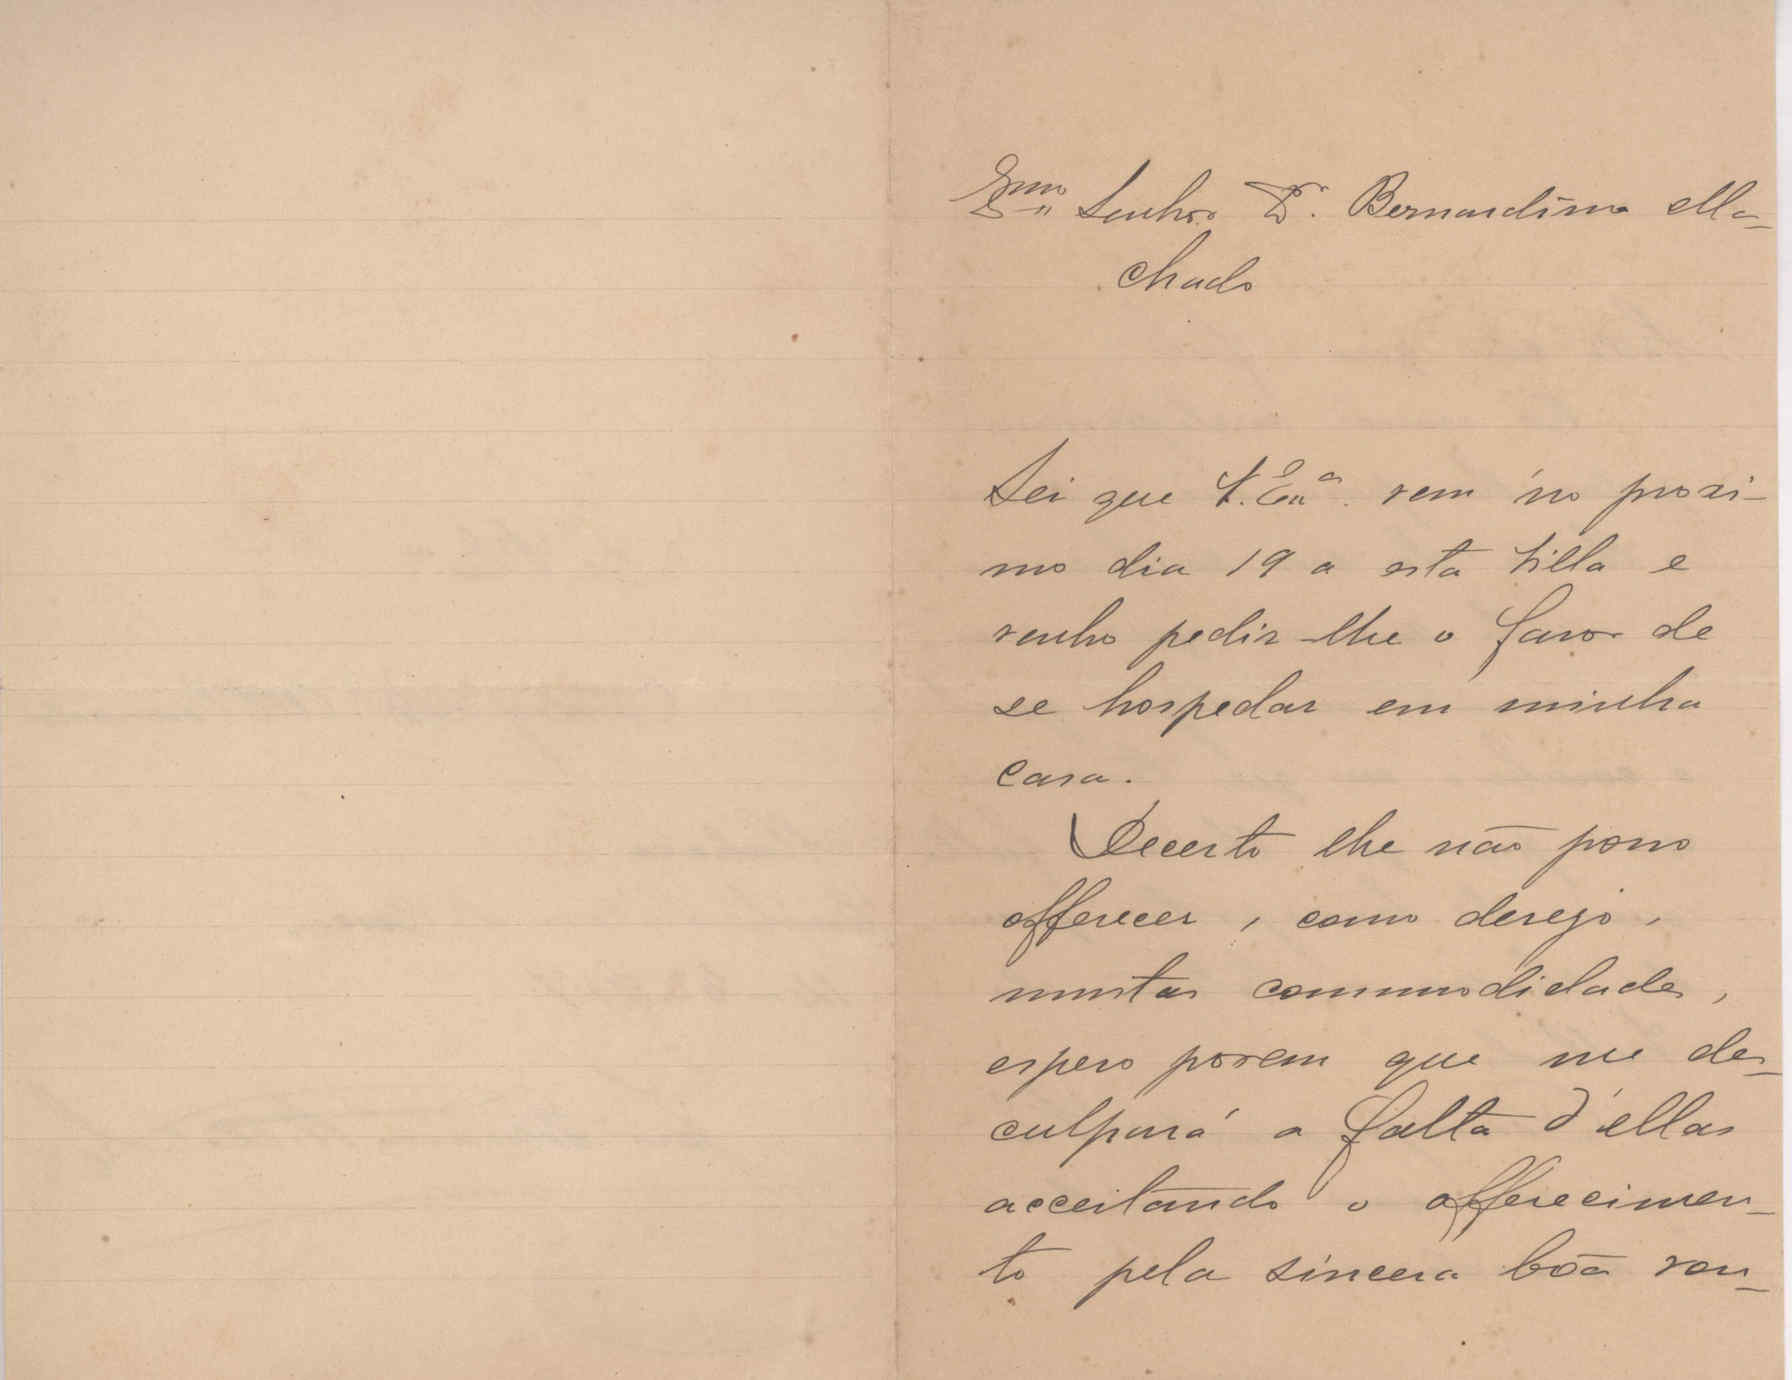 Exmo Senhor Dr. Bernardino Ma-
chado
Sei que V. Exa. vem no proxi-
mo dia 19 a esta Villa e
venho pedir-lhe o favor de
se hospedar em minha
casa.
Decerto lhe não posso
offerecer, como desejo,
muitas commodidades,
espero porem que me des-
culpará a falta d'ellas
acceitando o offerecimen-
to pela sincera bôa von-